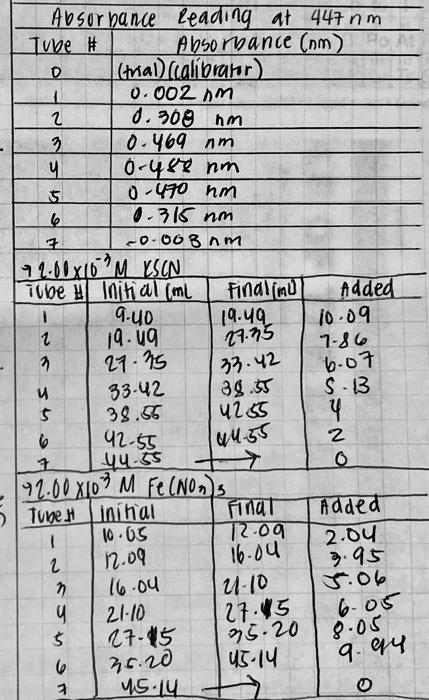 Absorbance Reading at 447 nm
Tube # Absorbance (nm)
0 (trial) (calibrator)
1 0.002 nm
2 0.308 nm
3 0.469 nm
4 0.488 nm
5 0.470 nm
6 0.315 nm
7 -0.008 nm
→ 2.00 x 10⁻³ M KSCN
Tube # Initial (mL Final (mL) Added
1 9.40 19.49 10.09
2 19.49 27.35 7.86
3 27.35 33.42 6.07
4 33.42 38.55 5.13
5 38.55 42.55 4
6 42.55 44.55 2
7 44.55 → 0
→ 2.00 x 10⁻³ M Fe(NO₃)₃
Tube # initial Final Added
1 10.05 12.09 2.04
2 12.09 16.04 3.95
3 16.04 21.10 5.06
4 21.10 27.15 6.05
5 27.15 35.20 8.05
6 35.20 45.14 9.94
7 45.14 → 0